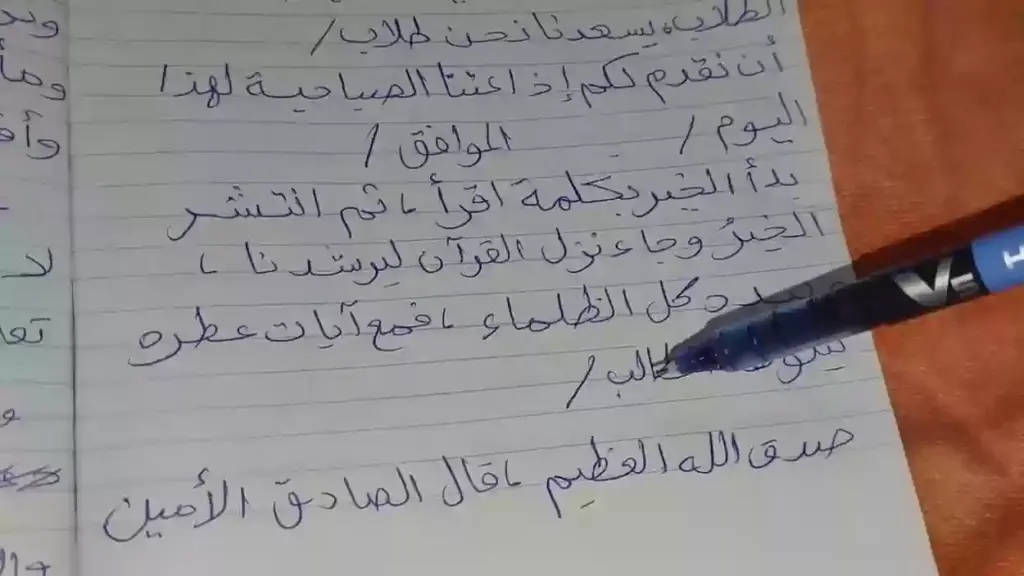 الطلاب، يسعدنا نحن طلاب /
أن نقدم لكم إذاعتنا الصباحية لهذا
اليوم / الموافق /
بدأ الخير بكلمة اقرأ، ثم انتشر
الخيرُ وجاء نزل القرآن ليرشدنا،
كل الظلماء، فمع آيات عطره
/
صدق الله العظيم، قال الصادق الأمين